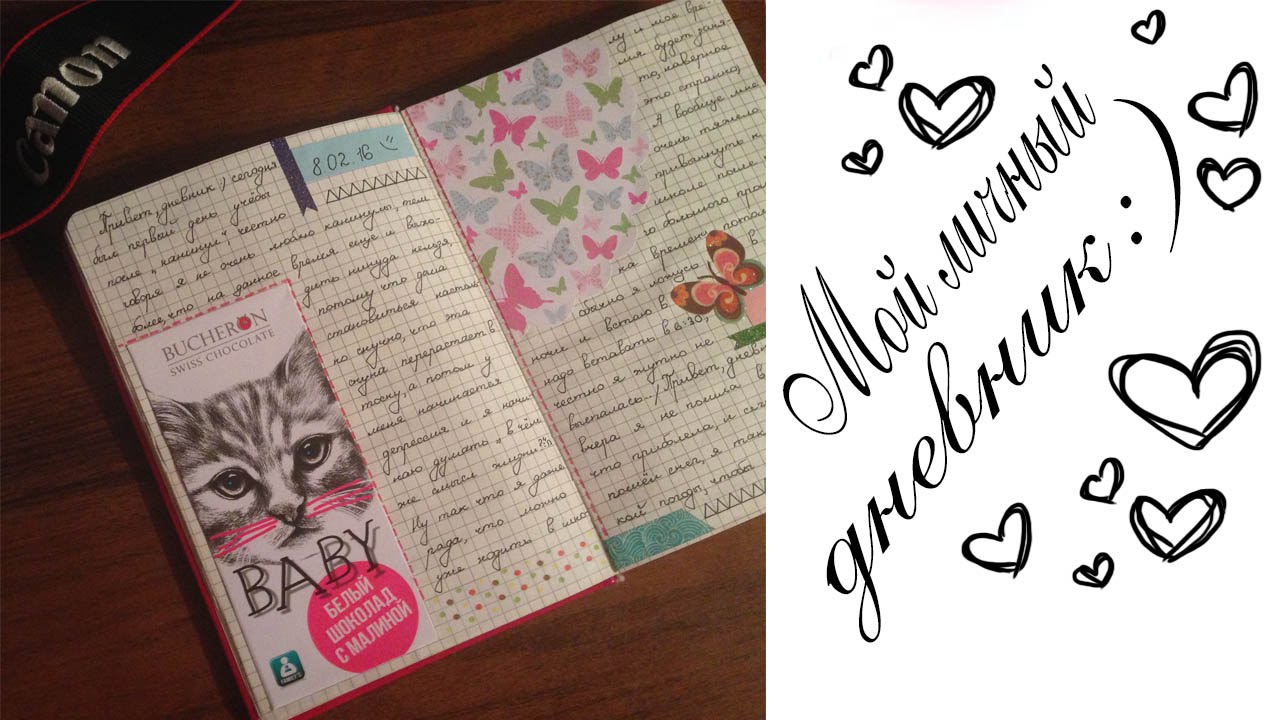 Canon
8.02.16
Привет, дневник :) сегодня
был первый день учёбы
после "каникул", честно
говоря я не очень люблю каникулы, тем
более, что на данное время ещё и выхо-
дить никуда нельзя,
потому что дома
становиться настоль
ко скучно, что эта
скука перерастает в
тоску, а потом у
меня начинается
депрессия и я начи-
наю думать "в чём
же смысл жизни?"
Ну так что я даже
рада, что можно
уже ходить в шко-
BUCHERON
SWISS CHOCOLATE
BABY
БЕЛЫЙ
ШОКОЛАД
С МАЛИНОЙ
лу и мое вре-
мя будет заня-
то, наверное
это странно,
А вообще мне
очень тяжело
привыкнуть к
школе после
го большого
на времени, потом
обычно я ложусь в
ночи и встаю в
надо вставать в 6:30,
честно я жутко не
выспалась. Привет,
вчера я не пошла в
что приболела, и
пошёл снег, я так
кой погоды, чтобы
Мой личный
дневник :)